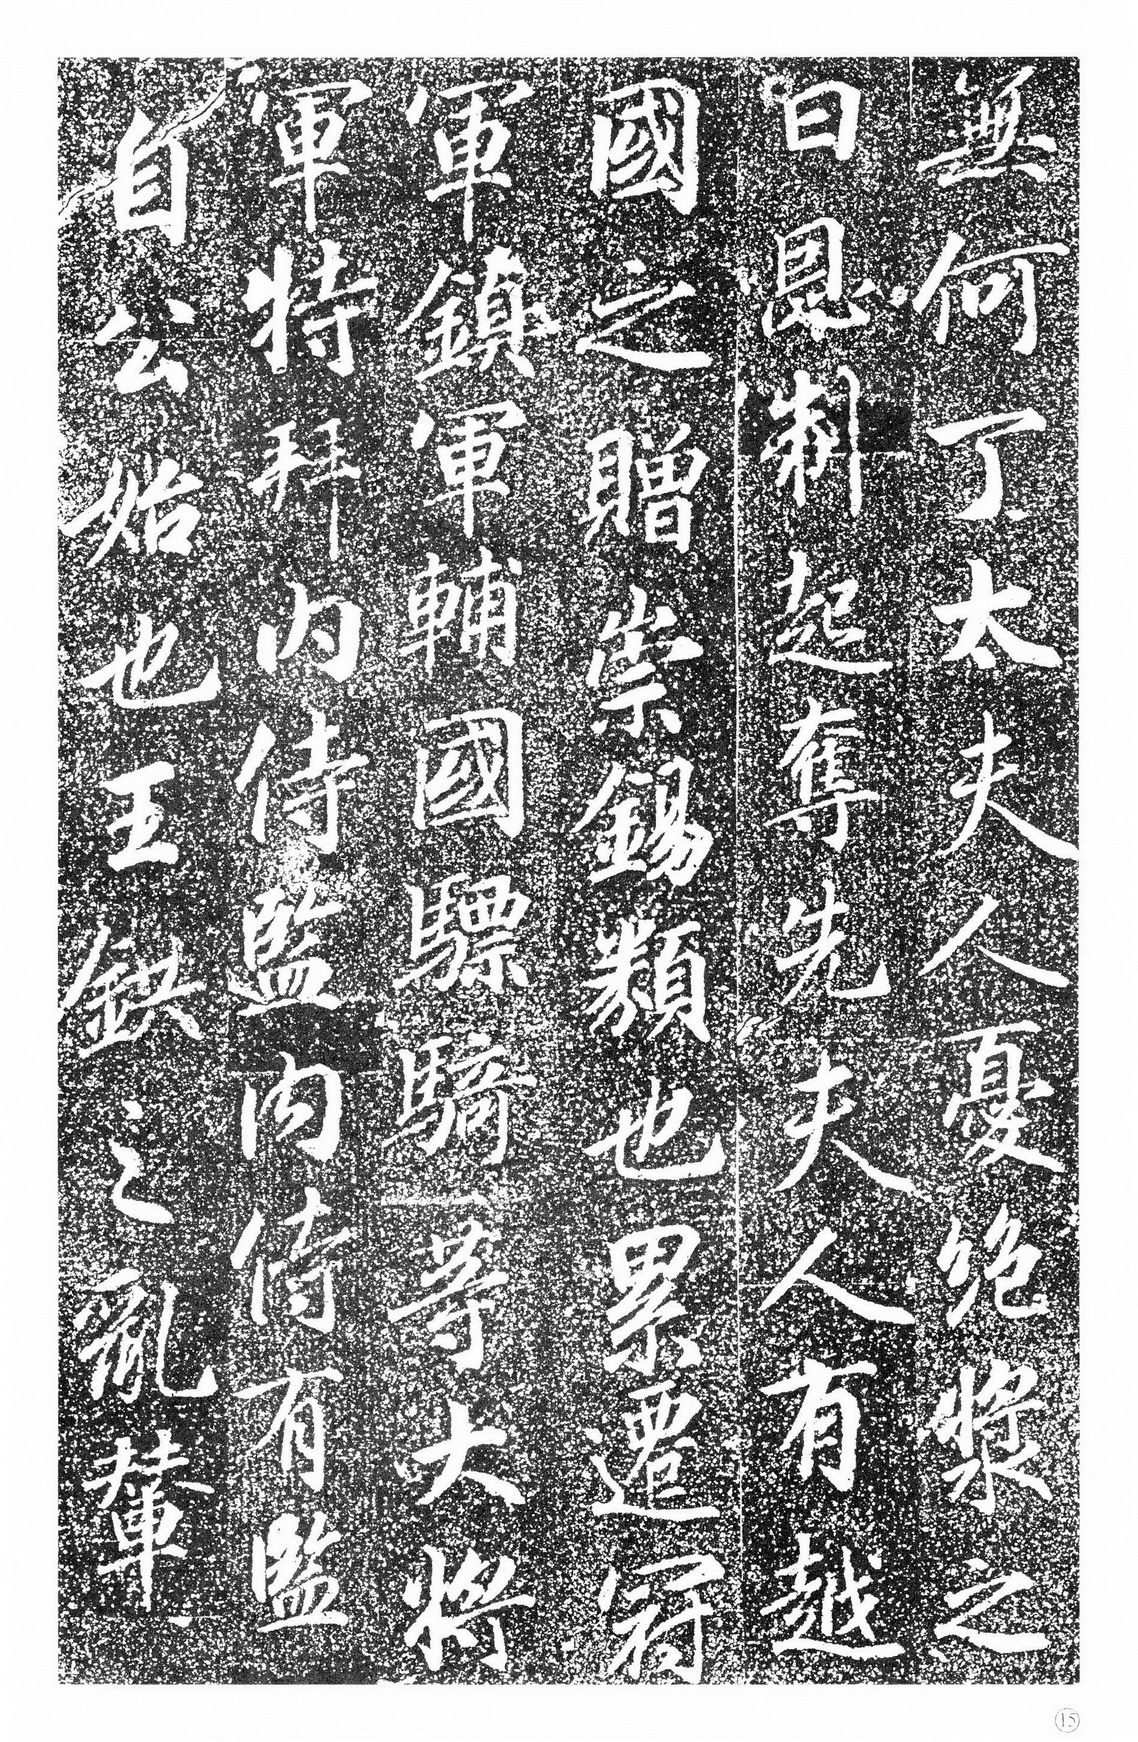 無何丁太夫人憂絶漿之
日恩制起奪先夫人有越
國之贈崇錫類也累遷冠
軍鎮軍輔國驃騎一等大將
軍特拜内侍監内侍有監
自公始也王鉷之亂輦
15